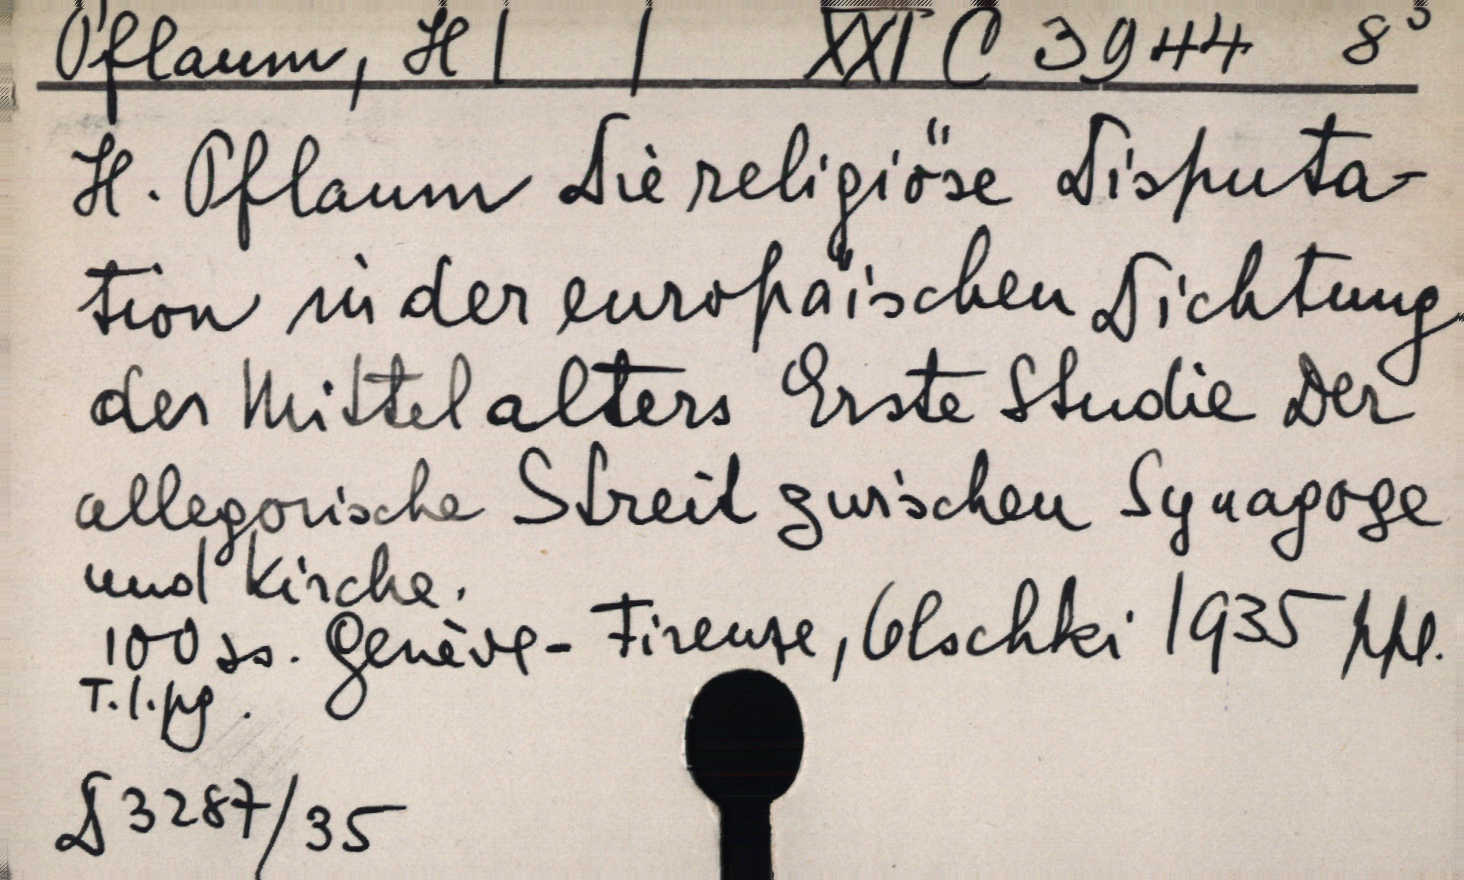 Pflaum, H | | XXI C 3944 8°
H. Pflaum Die religiöse Disputa-
tion in der europäischen Dichtung
des Mittelalters Erste Studie Der
allegorische Streit zwischen Synagoge
und Kirche.
100 ss. Genève - Firenze, Olschki 1935 ppl.
T. l. pg.
D 3287/35